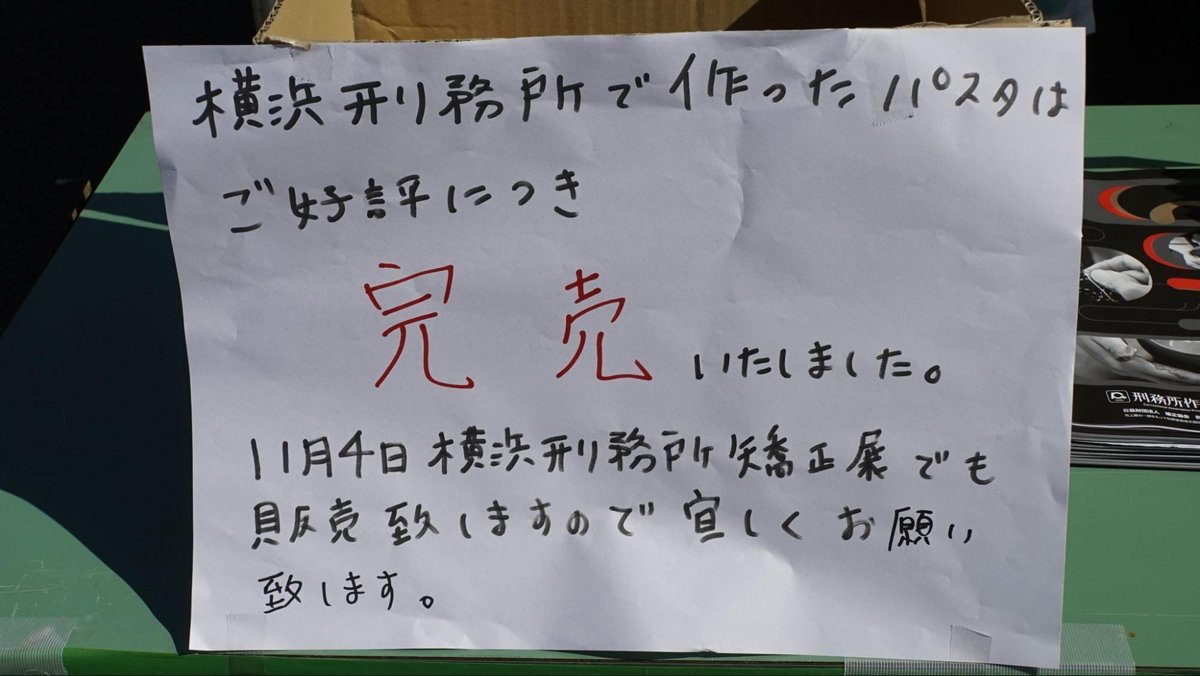 横浜刑務所で作ったパスタは
ご好評につき
完売いたしました。
11月4日横浜刑務所矯正展でも
販売致しますので宜しくお願い
致します。
刑務所作
公益財団法人 矯正協会